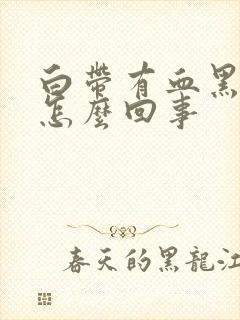 白帶有血黑
怎麼回事
春天的黑龍江